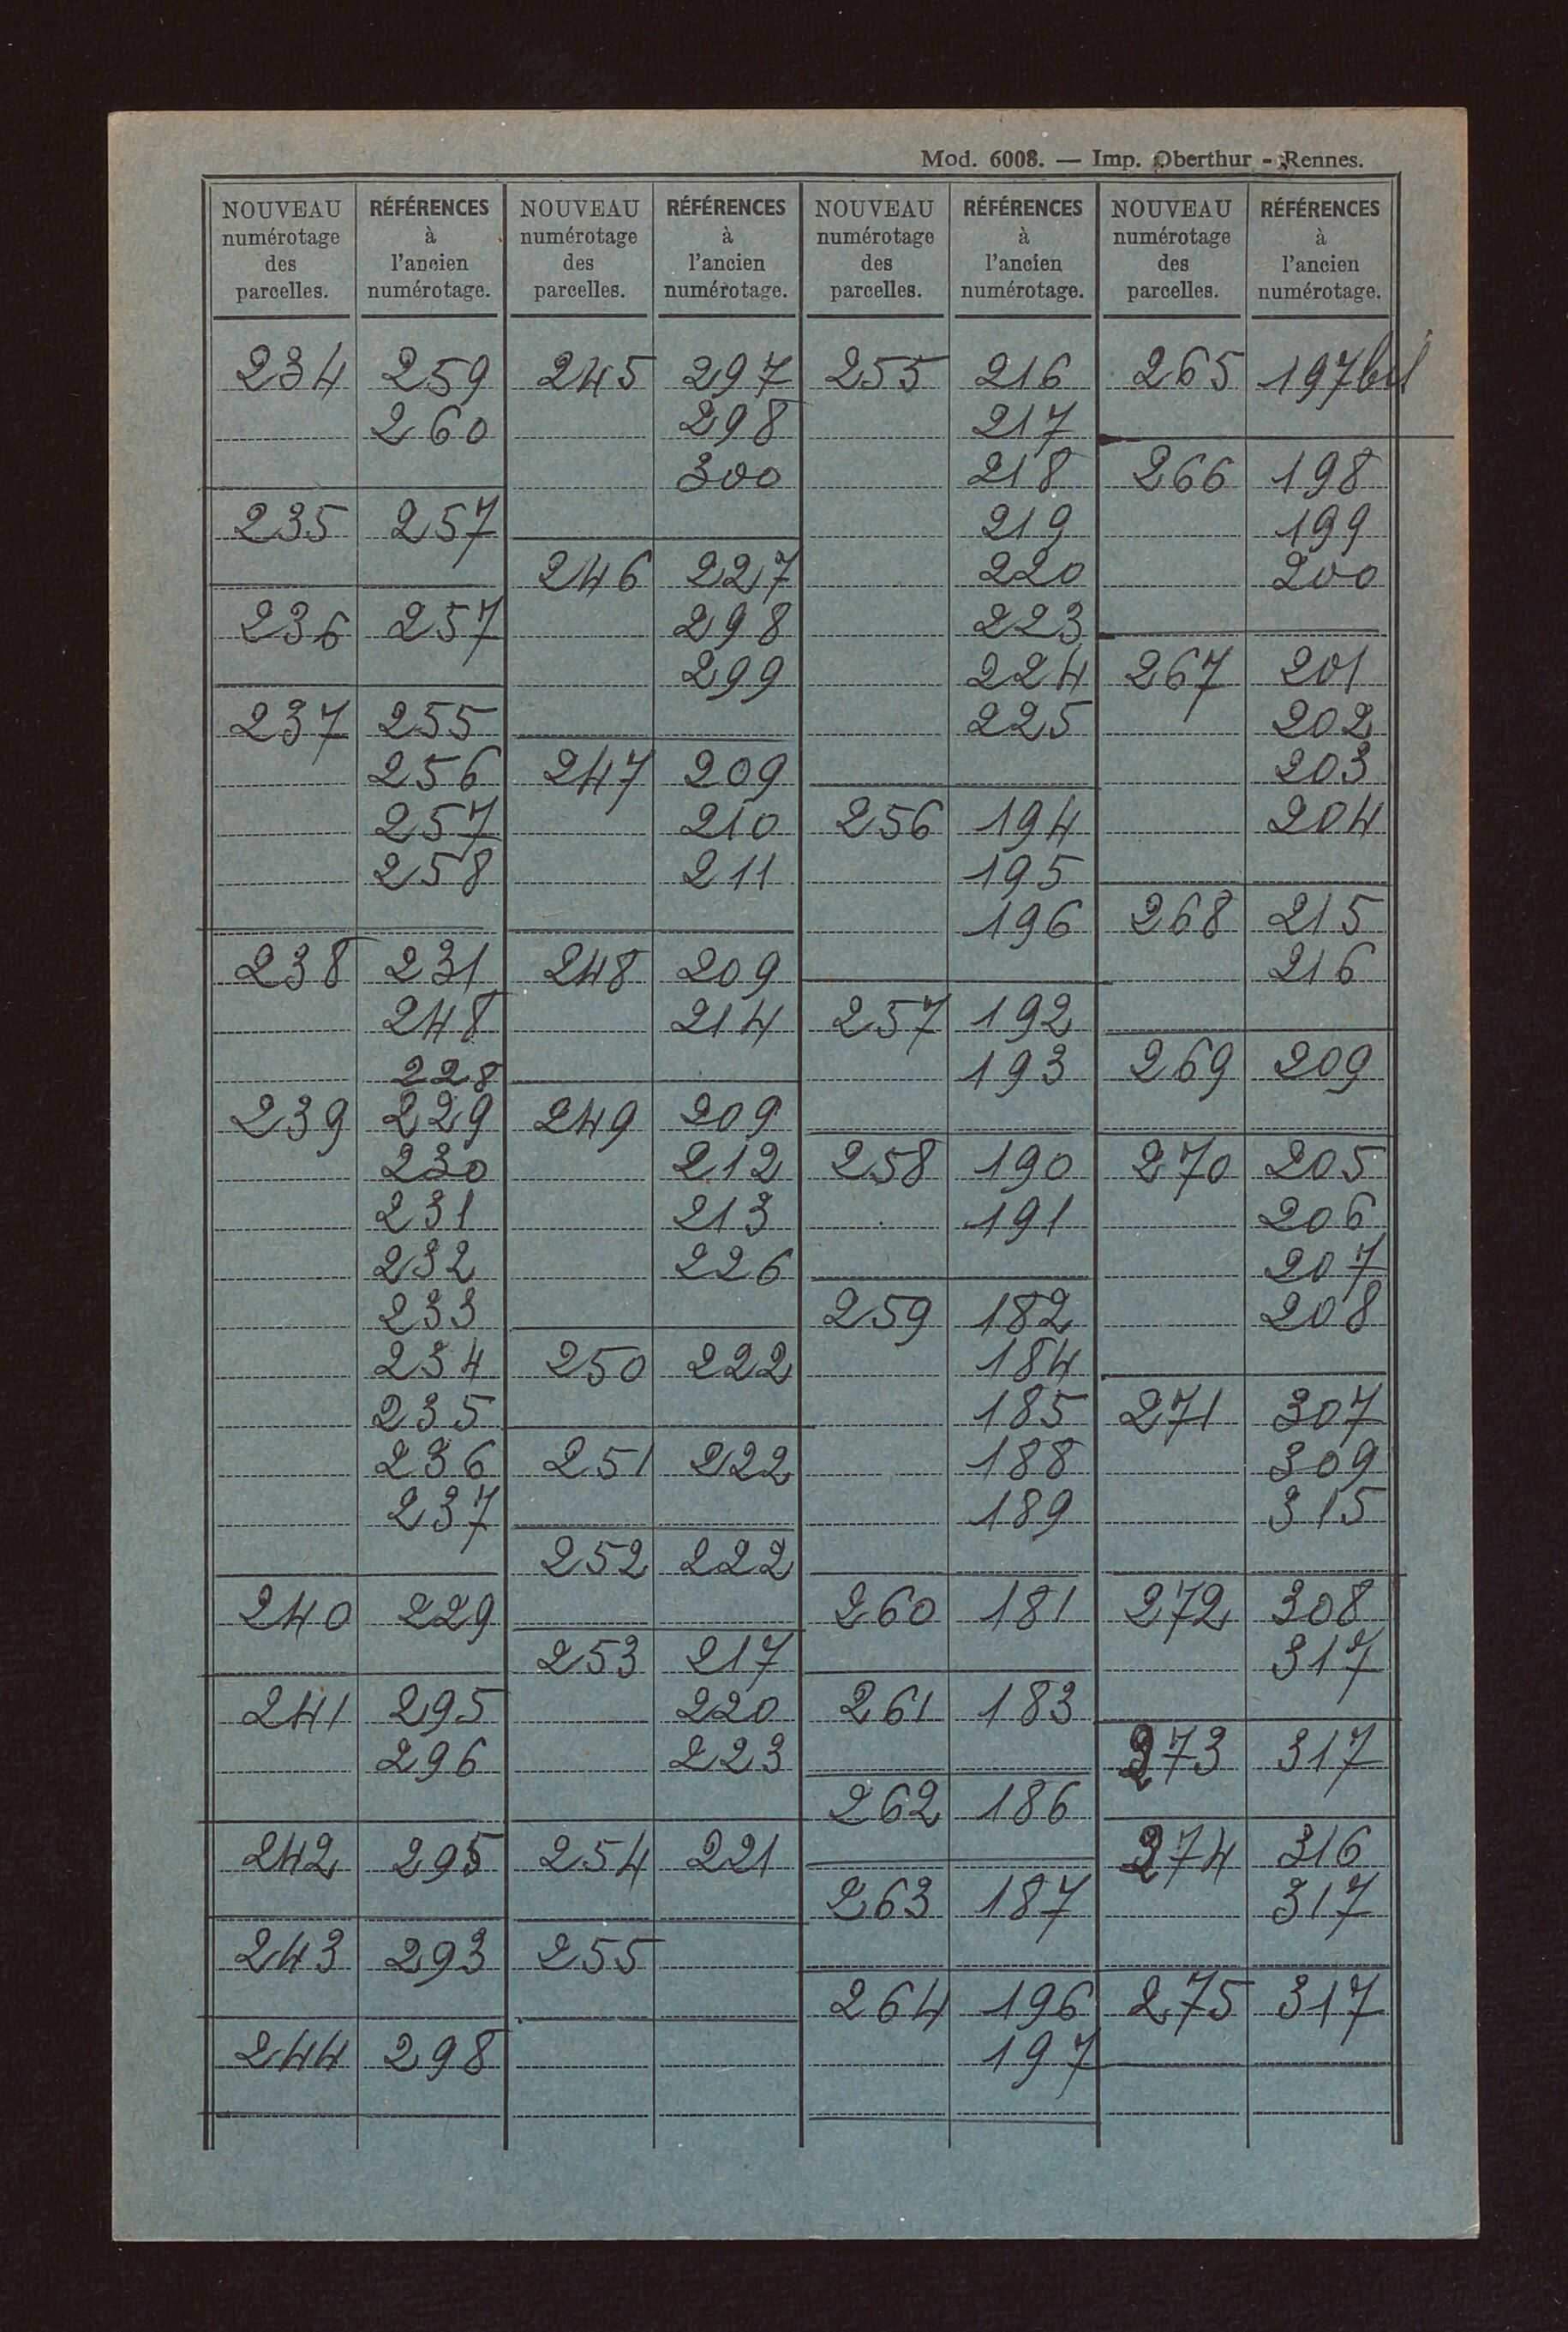 Mod. 6008. — Imp. Oberthur - Rennes.
NOUVEAU numérotage des parcelles. | RÉFÉRENCES à l'ancien numérotage. | NOUVEAU numérotage des parcelles. | RÉFÉRENCES à l'ancien numérotage. | NOUVEAU numérotage des parcelles. | RÉFÉRENCES à l'ancien numérotage. | NOUVEAU numérotage des parcelles. | RÉFÉRENCES à l'ancien numérotage.
234 259
260
235 257
236 257
237 255
256
257
258
238 231
248
228
239 229
230
231
232
233
234
235
236
237
240 229
241 295
296
242 295
243 293
244 298
245 297
298
300
246 227
298
299
247 209
210
211
248 209
214
249 209
212
213
226
250 222
251 222
252 222
253 217
220
223
254 221
255
255 216
217
218
219
220
223
224
225
256 194
195
196
257 192
193
258 190
191
259 182
184
185
188
189
260 181
261 183
262 186
263 187
264 196
197
265 197 bis
266 198
199
200
267 201
202
203
204
268 215
216
269 209
270 205
206
207
208
271 307
309
315
272 308
317
273 317
274 316
317
275 317